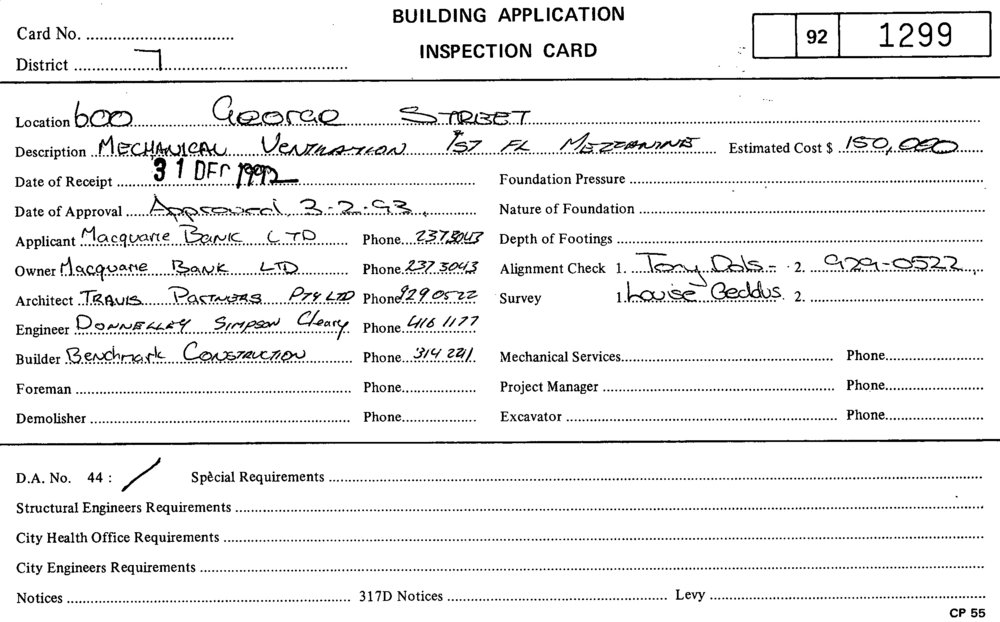 BUILDING APPLICATION
INSPECTION CARD
Card No.
District 7
92 1299
Location 600 George Street
Description MECHANICAL VENTILATION 1ST FL MEZZANINE Estimated Cost $ 150,000
Date of Receipt 31 DEC 1992 Foundation Pressure
Date of Approval Approved 3-2-93. Nature of Foundation
Applicant Macquarie Bank LTD Phone 2373043 Depth of Footings
Owner Macquarie Bank LTD Phone 237 3043 Alignment Check 1. Tony Dols - 2. 929-0522
Architect Travis Partners Pty LTD Phone 929 0522 Survey 1. Louise Geddus. 2.
Engineer Donnelley Simpson Cleary Phone 416 1177
Builder Benchmark Construction Phone 314 221 Mechanical Services Phone
Foreman Phone Project Manager Phone
Demolisher Phone Excavator Phone
D.A. No. 44 : / Special Requirements
Structural Engineers Requirements
City Health Office Requirements
City Engineers Requirements
Notices 317D Notices Levy
CP 55